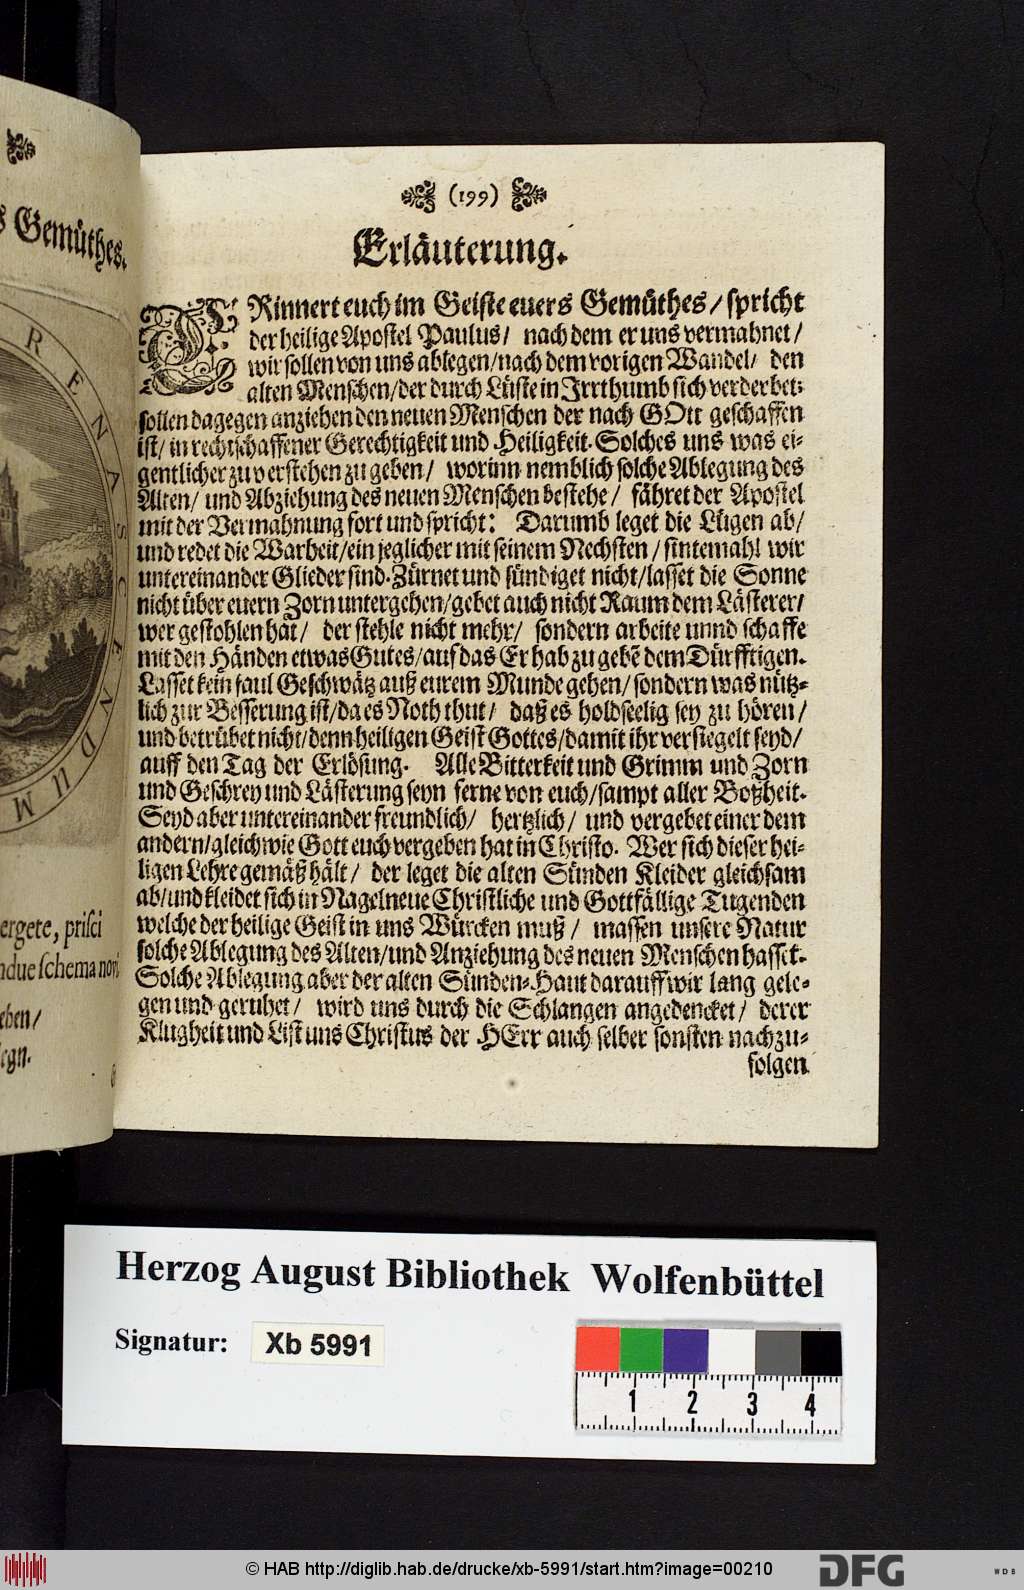 s Gemüthes.
RENASCENDUM
ergete, prisci
ndue schema novi
eben/
legn.
(199)
Erläuterung.
ERinnert euch im Geiste euers Gemüthes/ spricht
der heilige Apostel Paulus/ nach dem er uns vermahnet/
wir sollen von uns ablegen/ nach dem vorigen Wandel/ den
alten Menschen/ der durch Lüste in Irrthumb sich verderbet:
sollen dagegen anziehen den neuen Menschen der nach GOtt geschaffen
ist/ in rechtschaffener Gerechtigkeit und Heiligkeit. Solches uns was ei-
gentlicher zu verstehen zu geben/ worinn nemblich solche Ablegung des
Alten/ und Abziehung des neuen Menschen bestehe/ fähret der Apostel
mit der Vermahnung fort und spricht: Darumb leget die Lügen ab/
und redet die Warheit/ ein jeglicher mit seinem Nechsten/ sintemahl wir
untereinander Glieder sind. Zürnet und sündiget nicht/ lasset die Sonne
nicht über euern Zorn untergehen/ gebet auch nicht Raum dem Lästerer/
wer gestohlen hat/ der stehle nicht mehr/ sondern arbeite unnd schaffe
mit den Händen etwas Gutes/ auf das Er hab zu gebē dem Dürfftigen.
Lasset kein faul Geschwätz auß eurem Munde gehen/ sondern was nütz-
lich zur Besserung ist/ da es Noth thut/ daß es holdseelig sey zu hören/
und betrübet nicht/ denn heiligen Geist Gottes/ damit ihr versiegelt seyd/
auff den Tag der Erlösung. Alle Bitterkeit und Grimm und Zorn
und Geschrey und Lästerung seyn ferne von euch/ sampt aller Boßheit.
Seyd aber untereinander freundlich/ hertzlich/ und vergebet einer dem
andern/ gleich wie Gott euch vergeben hat in Christo. Wer sich dieser hei-
ligen Lehre gemäß hält/ der leget die alten Sünden Kleider gleichsam
ab/ und kleidet sich in Nagelneue Christliche und Gottfällige Tugenden
welche der heilige Geist in uns Würcken muß/ massen unsere Natur
solche Ablegung des Alten/ und Anziehung des neuen Menschen hasset.
Solche Ablegung aber der alten Sünden-Haut darauff wir lang gele-
gen und geruhet/ wird uns durch die Schlangen angedencket/ derer
Klugheit und List uns Christus der HErr auch selber sonsten nachzu-
folgen
Herzog August Bibliothek Wolfenbüttel
Signatur: Xb 5991
1 2 3 4
© HAB http://diglib.hab.de/drucke/xb-5991/start.htm?image=00210
DFG
WDB